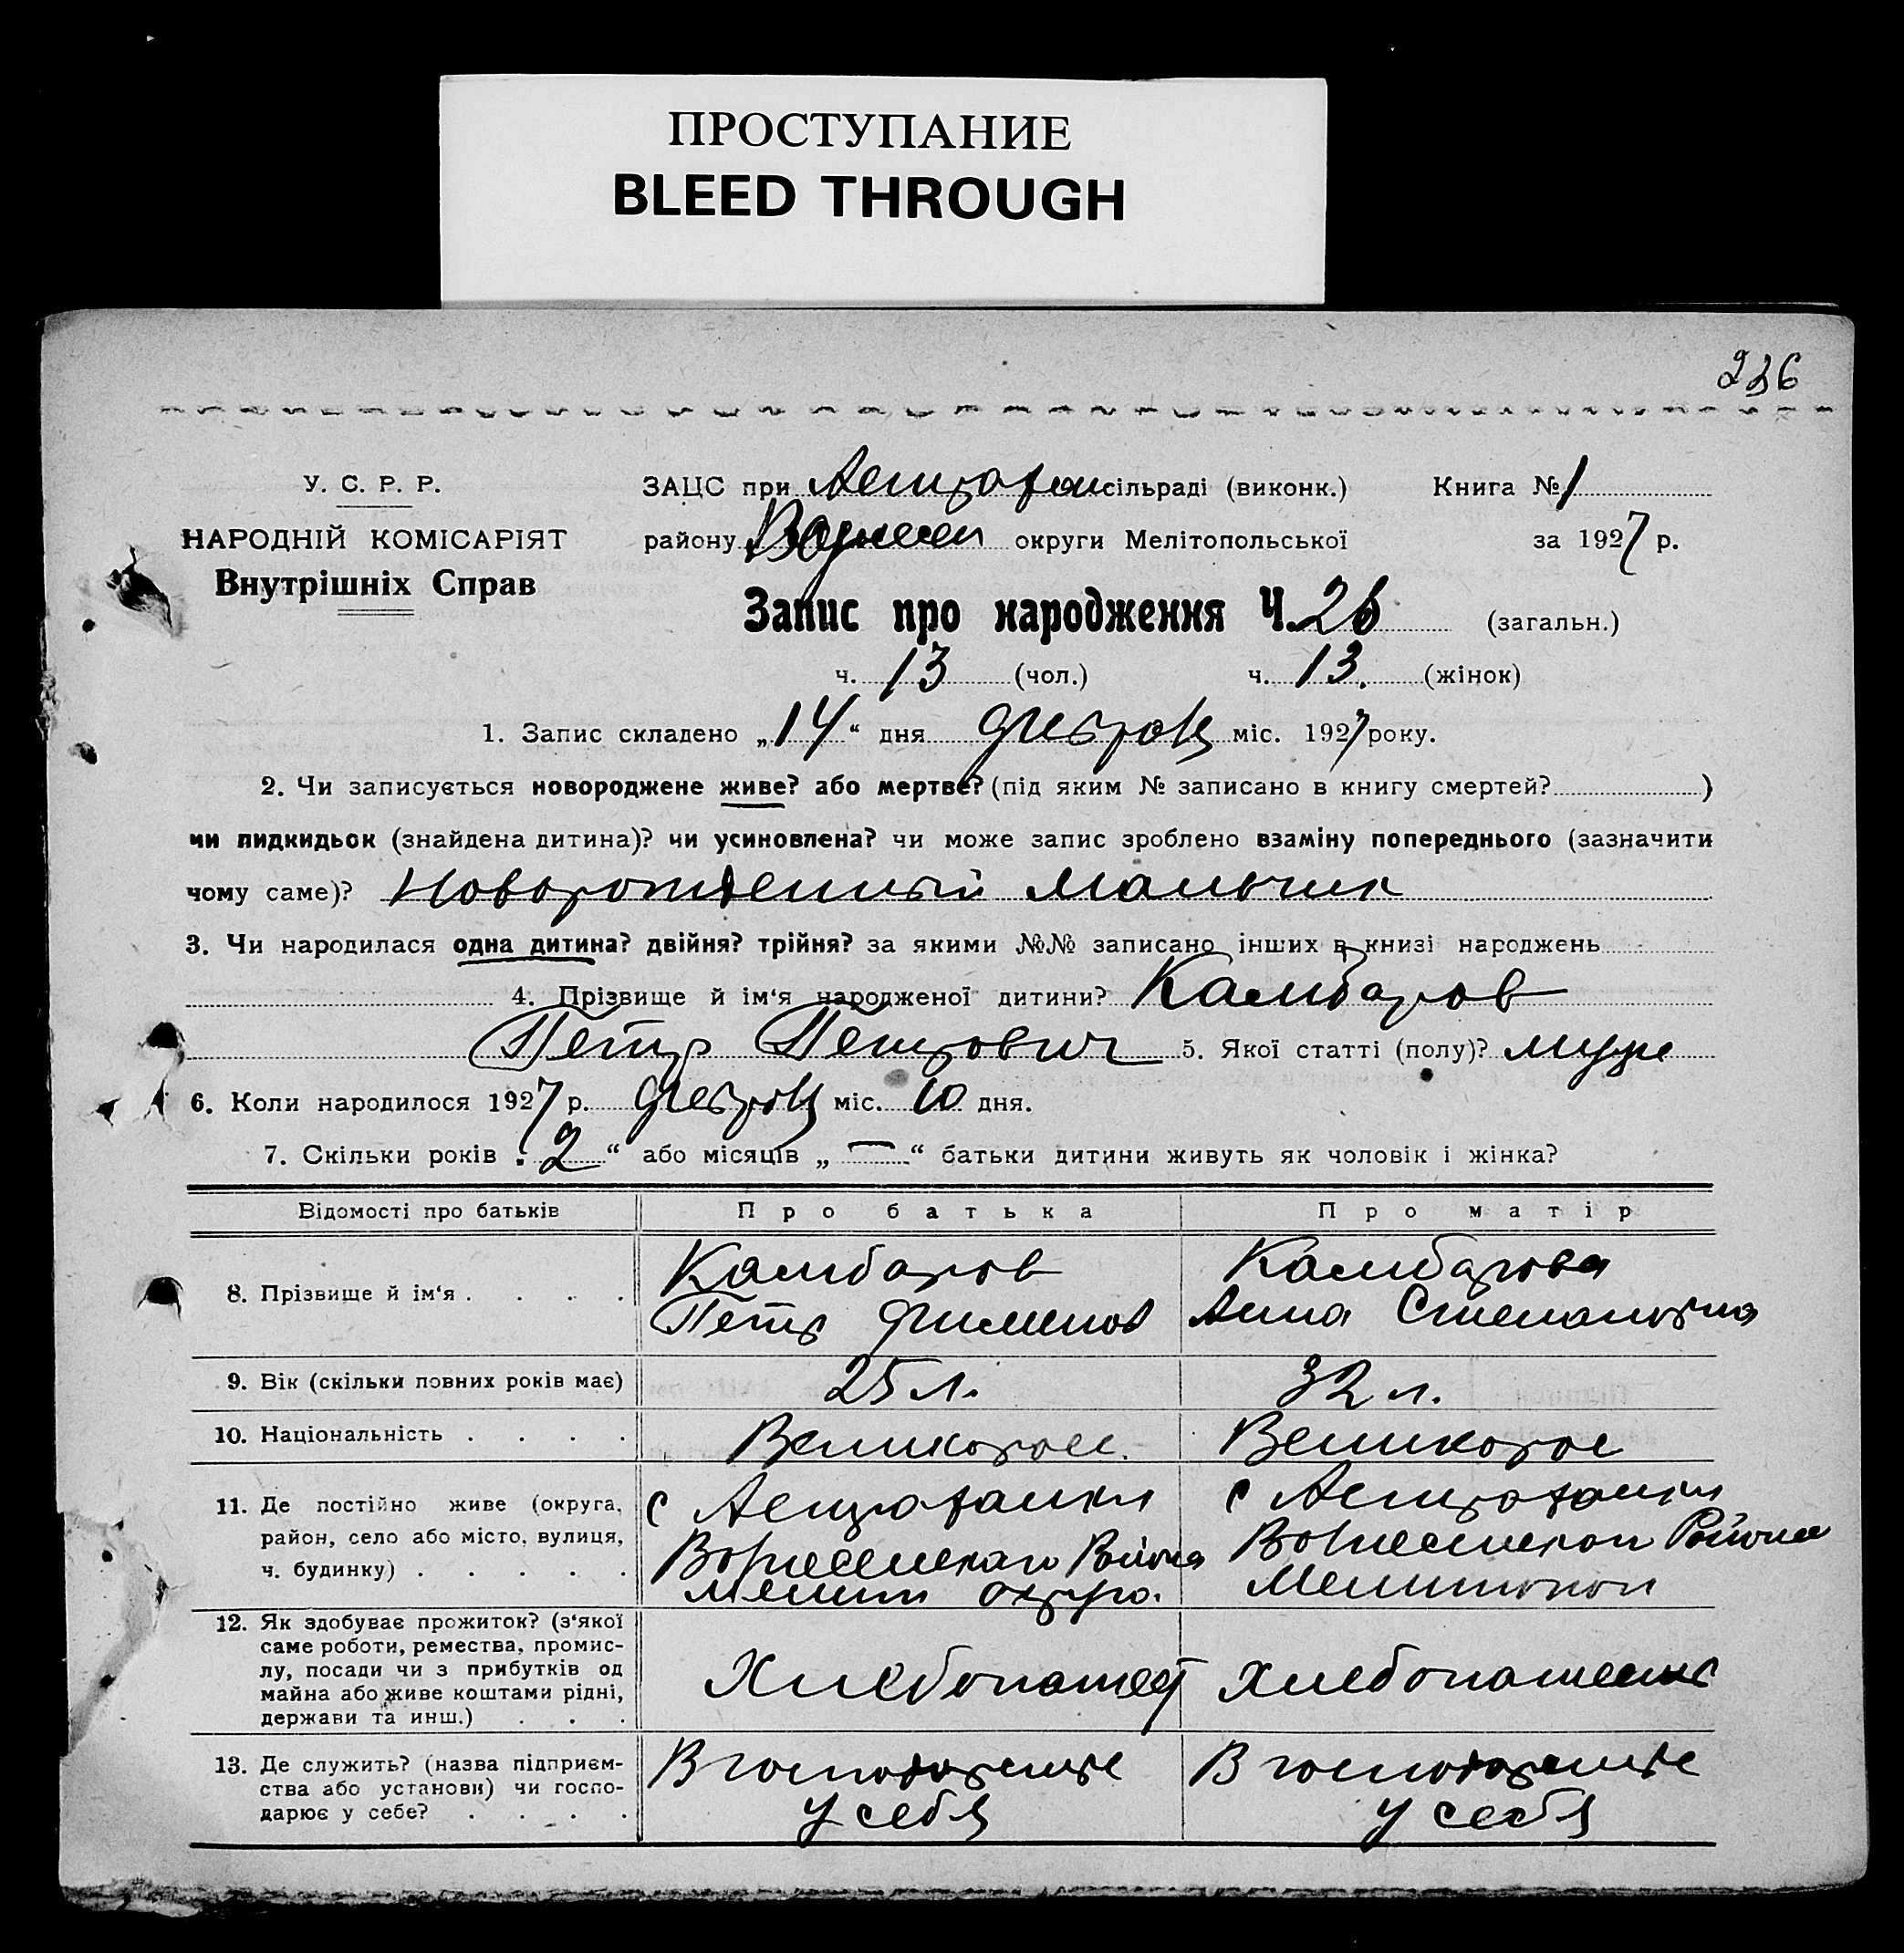 ПРОСТУПАНИЕ
BLEED THROUGH
236
У. С. Р. Р.
ЗАЦС при Астрахан сільраді (виконк.) Книга № 1
НАРОДНІЙ КОМІСАРІЯТ
району Вознесен округи Мелітопольської за 1927 р.
Внутрішніх Справ
Запис про народження Ч. 26 (загальн.)
ч. 13 (чол.) ч. 13. (жінок)
1. Запис складено „14“ дня февраля міс. 1927 року.
2. Чи записується новороджене живе? або мертве? (під яким № записано в книгу смертей? )
чи пидкидьок (знайдена дитина)? чи усиновлена? чи може запис зроблено взаміну попереднього (зазначити
чому саме)? Новорожденный Мальчик
3. Чи народилася одна дитина? двійня? трійня? за якими №№ записано інших в книзі народжень
4. Прізвище й ім‘я народженої дитини? Камбаров
Петр Петрович 5. Якої статті (полу)? муже
6. Коли народилося 1927 р. февраля міс. 10 дня.
7. Скільки років „2“ або місяців „—“ батьки дитини живуть як чоловік і жінка?
Відомості про батьків Про батька Про матір
8. Прізвище й ім‘я . . . .
Камбаров
Петр Фименов
Камбарова
Анна Степановна
9. Вік (скільки повних років має) 25 л. 32 л.
10. Національність . . . . Великорос. Великорос
11. Де постійно живе (округа,
район, село або місто, вулиця,
ч. будинку) . . . . .
с Астраханки
Вознесенскаго Района
Мелит округа.
с Астраханки
Вознесенскаго Района
Мелитопол
12. Як здобуває прожиток? (з‘якої
саме роботи, ремества, промис-
лу, посади чи з прибутків од
майна або живе коштами рідні,
держави та инш.) . . .
Хлебопашец
Хлебопашество
13. Де служить? (назва підприєм-
ства або установи) чи госпо-
дарює у себе? . . . .
В господарстве
у себя
В господарстве
у себя